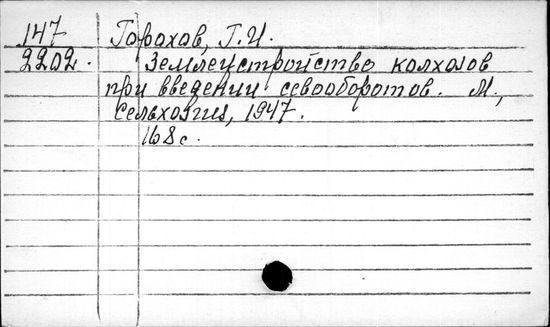 147 Горохов, Г.И.
2202. Землеустройство колхозов
при введении севооборотов. М.,
Сельхозгиз, 1947.
168 с.